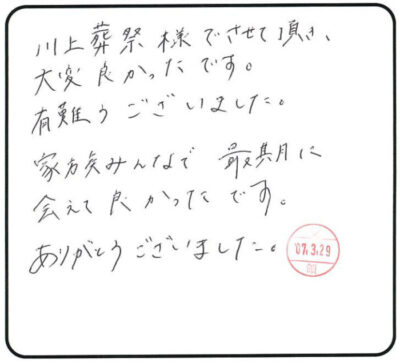 川上葬祭様でさせて頂き、
大変良かったです。
有難うございました。
家族みんなで 最期に
会えて良かったです。
ありがとうございました。
'07.3.29